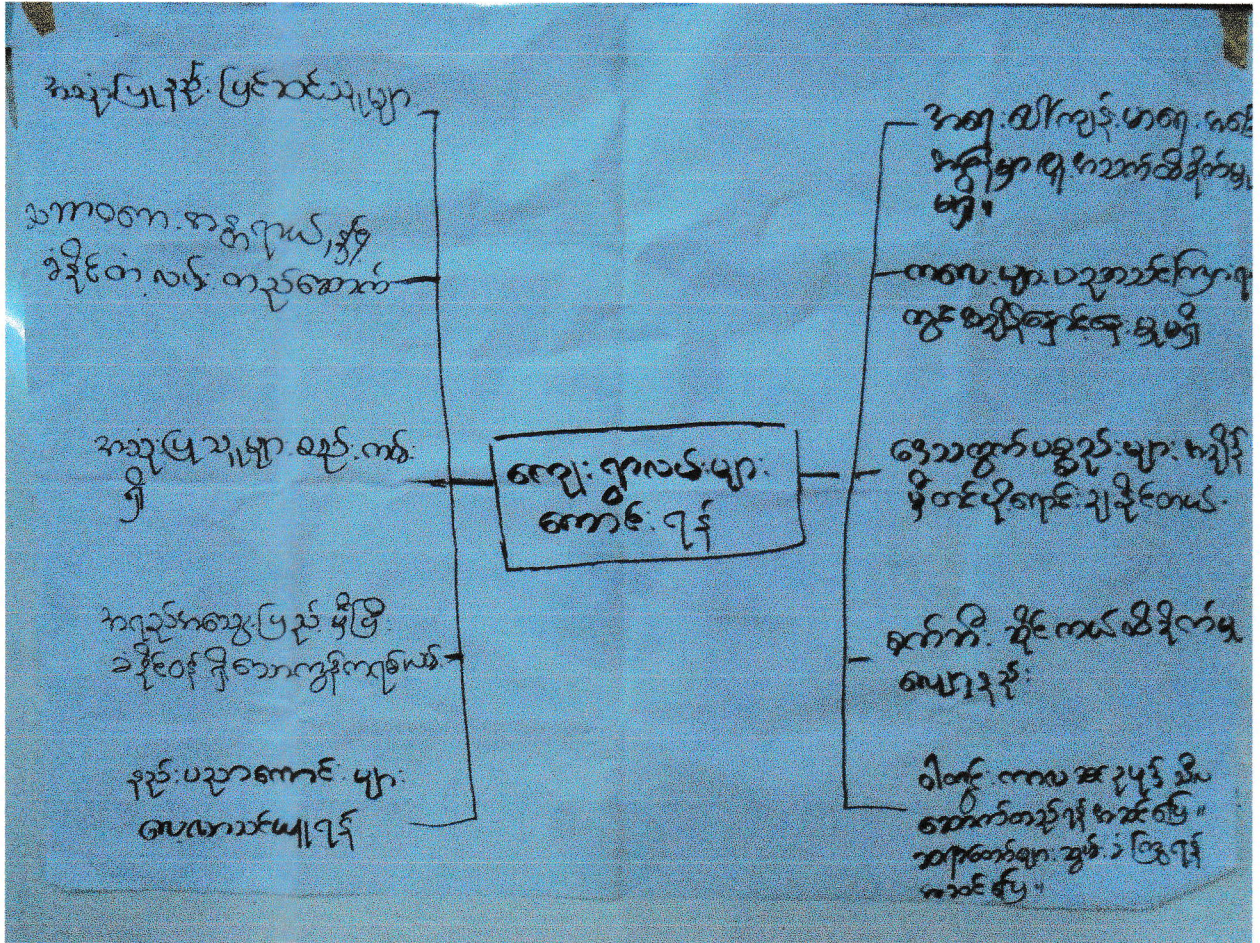 အသုံးပြုနည်း ပြင်ဆင်သူများ
သဘာဝဘေး အန္တရာယ်
ခံနိုင်တဲ့ လမ်း တည်ဆောက်
အသုံးပြုသူများ စည်းကမ်း
ရှိ
အရည်အသွေးပြည့်မှီပြီး
ခံနိုင်ဝန်ရှိသောကွန်ကရစ်လမ်း
နည်းပညာကောင်းများ
လေ့လာသင်ယူရန်
ကျေးရွာလမ်းများ
ကောင်းရန်
အရေးပေါ်ကျန်းမာရေး
အသက်ထိခိုက်မှု
မရှိ။
ကလေးများ ပညာသင်ကြားရာ
တွင် အချိန်နှောင့်နှေးမှုမရှိ
ဒေသထွက်ပစ္စည်းများ အချိန်
မှီတင်ပို့ရောင်းချနိုင်တယ်
စက်ဘီး ဆိုင်ကယ်ထိခိုက်မှု
လျော့နည်း
ဝါတွင်းကာလ ဥပုဒ်သီလ
ဆောက်တည်ရန်အဆင်ပြေ။
ဆရာတော်များ ဆွမ်းခံကြွရန်
အဆင်ပြေ။